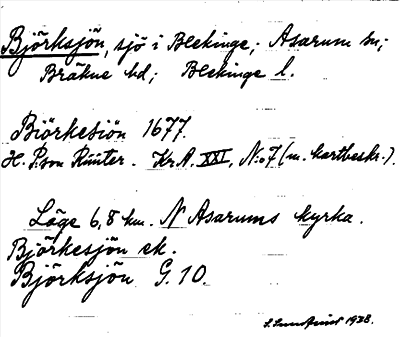 Björksjön, sjö i Blekinge; Asarum sn;
Bräkne hd; Blekinge l.
Biörkesiön 1677.
H. P:son Rüüter. Kr.A. XXI, N:o 7 (m. kartbeskr.).
Läge 6,8 km. N Asarums kyrka.
Björkesjön ek.
Björksjön G. 10.
1928.